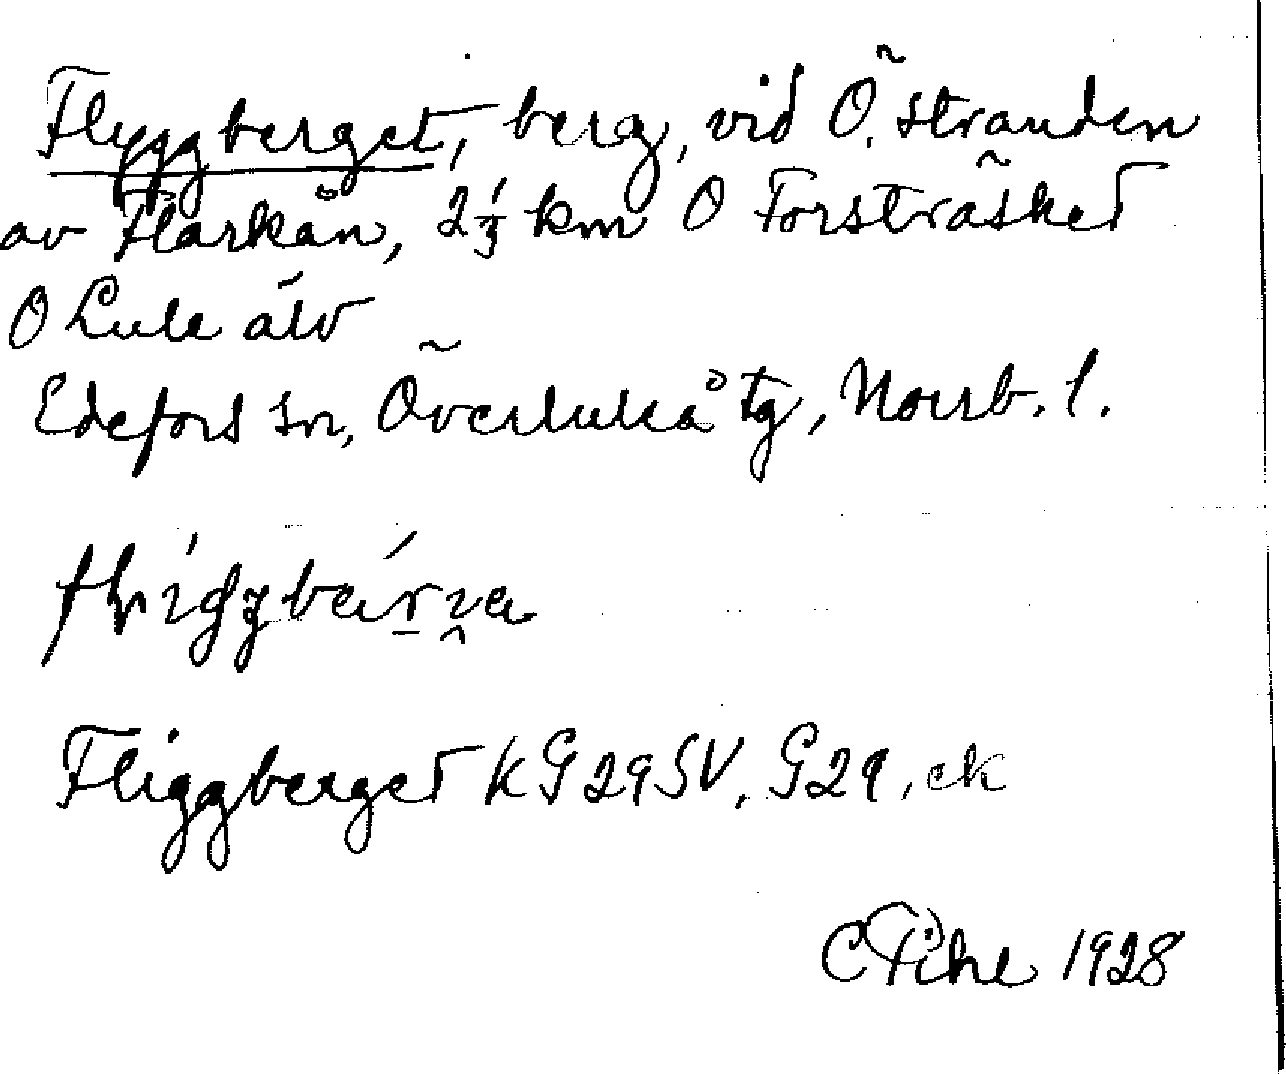 Flyggberget, berg, vid Ö. stranden
av Flarkån, 2 1/3 km O Forsträsket
O Lule älv
Edefors sn, Överluleå tg, Norrb. l.
Fliggberget k G29SV, G29, ek
C Pihl 1928